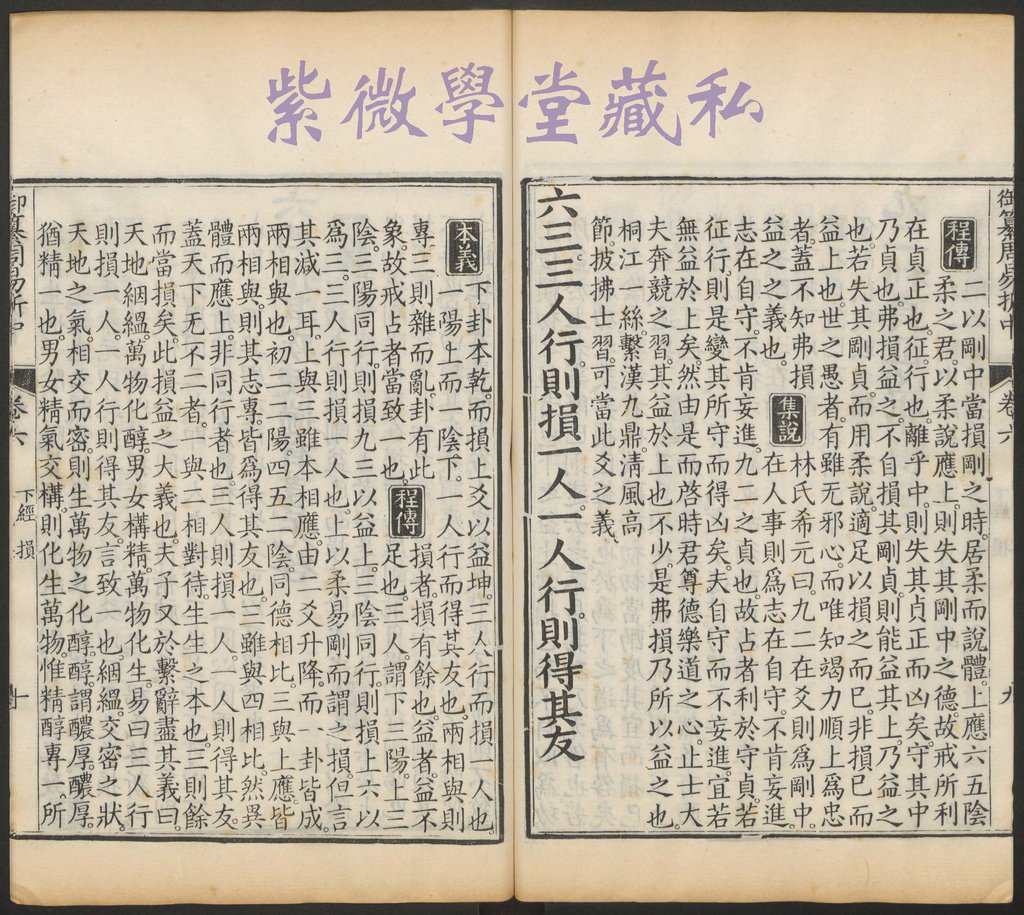 紫微學堂藏私
御纂周易折中 卷六 九
程傳 二以剛中當損剛之時。居柔而說體。上應六五陰
柔之君。以柔說應上。則失其剛中之德。故戒所利
在貞正也。征行也。離乎中。則失其貞正而凶矣。守其中
乃貞也。弗損益之。不自損其剛貞。則能益其上。乃益之
也。若失其剛貞。而用柔說。適足以損之而已。非損己而
益上也。世之愚者。有雖无邪心。而唯知竭力順上爲忠
者。蓋不知弗損
益之之義也。
集說 林氏希元曰。九二在爻則爲剛中。
在人事則爲志在自守。不肯妄進。
志在自守。不肯妄進。九二之貞也。故占者利於守貞。若
征行。則是變其所守而得凶矣。夫自守而不妄進。宜若
無益於上矣。然由是而啓時君尊德樂道之心。止士大
夫奔競之習。其益於上也不少。是弗損乃所以益之也。
桐江一絲。繫漢九鼎。清風高
節。披拂士習。可當此爻之義。
六三三人行。則損一人。一人行。則得其友
本義 下卦本乾。而損上爻以益坤。三人行而損一人也。
一陽上而一陰下。一人行而得其友也。兩相與則
專。三則雜而亂。卦有此
象。故戒占者當致一也。
程傳 損者。損有餘也。益者。益不
足也。三人謂下三陽上三
陰。三陽同行。則損九三以益上。三陰同行。則損上六以
爲三。三人行則損一人也。上以柔易剛而謂之損。但言
其減一耳。上與三雖本相應。由二爻升降。而一卦皆成。
兩相與也。初二二陽。四五二陰。同德相比。三與上應。皆
兩相與。則其志專。皆爲得其友也。三雖與四相比。然異
體而應上。非同行者也。三人則損一人。一人則得其友。
蓋天下无不二者。一與二相對待。生生之本也。三則餘
而當損矣。此損益之大義也。夫子又於繫辭盡其義曰。
天地絪縕。萬物化醇。男女構精。萬物化生。易曰三人行
則損一人。一人行則得其友。言致一也。絪縕。交密之狀。
天地之氣。相交而密。則生萬物之化醇。醇謂醲厚。醲厚。
猶精一也。男女精氣交構。則化生萬物。惟精醇專一。所
卷六 下經 損 十